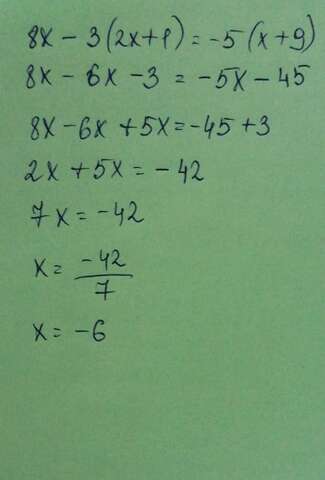 8x - 3(2x+1) = -5(x+9)
8x - 6x - 3 = -5x - 45
8x - 6x + 5x = -45 + 3
2x + 5x = -42
7x = -42
x = -42/7
x = -6